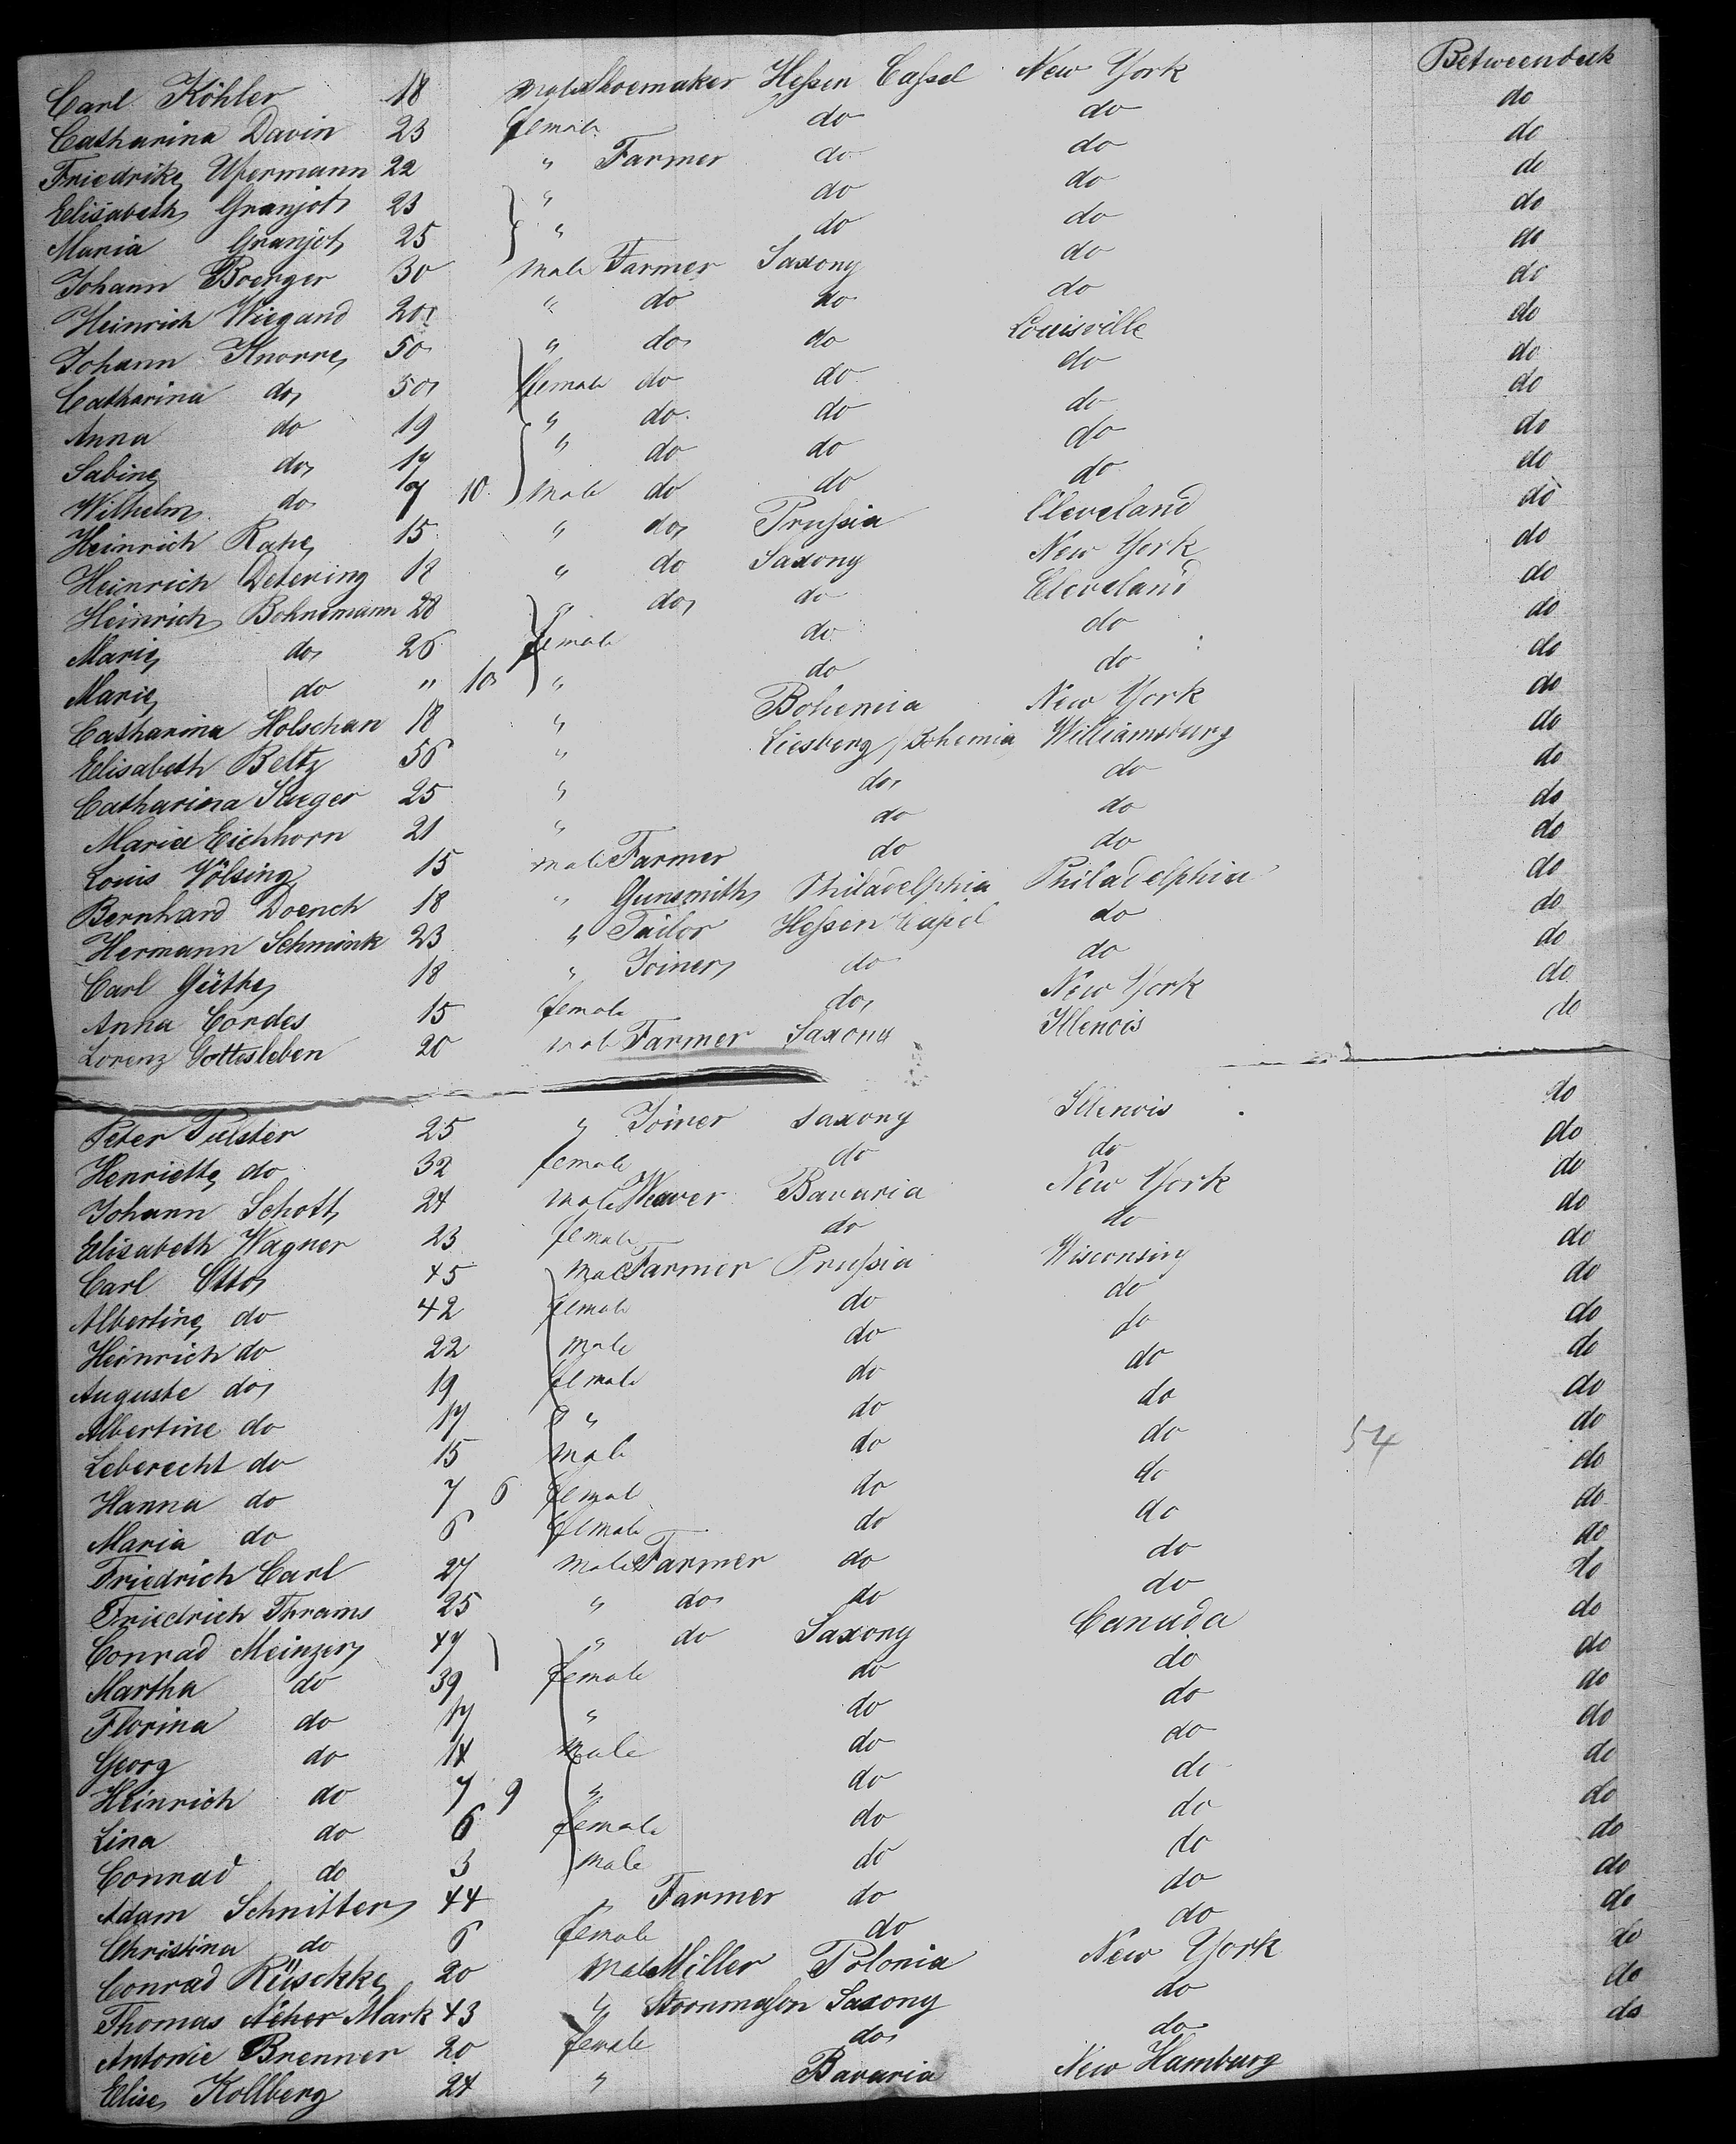 Carl Köhler 18 male Shoemaker Hessen Cassel New York Betweendeck
Catharina Davin 23 female do do do
Friedrike Upermann 22 " Farmer do do do
Elisabeth Granjot 23 " do do do
Maria Granjot 25 " do do do
Johann Boerger 30 male Farmer Saxony do do
Heinrich Wiegand 20 " do do do do
Johann Knorre 50 " do do Louisville do
Catharina do 50 female do do do do
Anna do 19 " do do do do
Sabine do 17 " do do do do
Wilhelm do 7 10 male do do do do
Heinrich Rahe 15 " do Prussia Cleveland do
Heinrich Detering 18 " do Saxony New York do
Heinrich Bohnemann 28 " do do Cleveland do
Marie do 26 female do do do
Marie do " 10 " do do do
Catharina Holschan 18 " Bohemia New York do
Elisabeth Beltz 56 " Liesberg / Bohemia Williamsburg do
Catharina Saeger 25 " do do do
Maria Eichhorn 21 " do do do
Louis Völsing 15 male Farmer do do do
Bernhard Doench 18 " Gunsmith Philadelphia Philadelphia do
Hermann Schmink 23 " Tailor Hessen Cassel do do
Carl Güthe 18 " Joiner do do do
Anna Cordes 15 female do New York do
Lorenz Gottesleben 20 male Farmer Saxony Illenois do
Peter Pulster 25 " Joiner Saxony Illenois do
Henriette do 32 female do do do
Johann Schott 24 male Weaver Bavaria New York do
Elisabeth Wagner 23 female do do do
Carl Otto 45 male Farmer Prussia Wisconsin do
Albertine do 42 female do do do
Heinrich do 22 male do do do
Auguste do 19 female do do do
Albertine do 17 " do do do
Leberecht do 15 male do do 54 do
Hanna do 7 6 female do do do
Maria do 6 female do do do
Friedrich Carl 27 male Farmer do do do
Friedrich Thrams 25 " do do do do
Conrad Meinzer 47 " do Saxony Canada do
Martha do 39 female do do do
Florina do 17 " do do do
Georg do 14 male do do do
Heinrich do 7 9 " do do do
Lina do 6 female do do do
Conrad do 3 male do do do
Adam Schnitter 44 " Farmer do do do
Christina do 6 female do do do
Conrad Rüschke 20 male Miller Polonia New York do
Thomas Mark 43 " Stoenmason Saxony do do
Antonie Brenner 20 female do do do
Elise Kollberg 24 " Bavaria New Hamburg